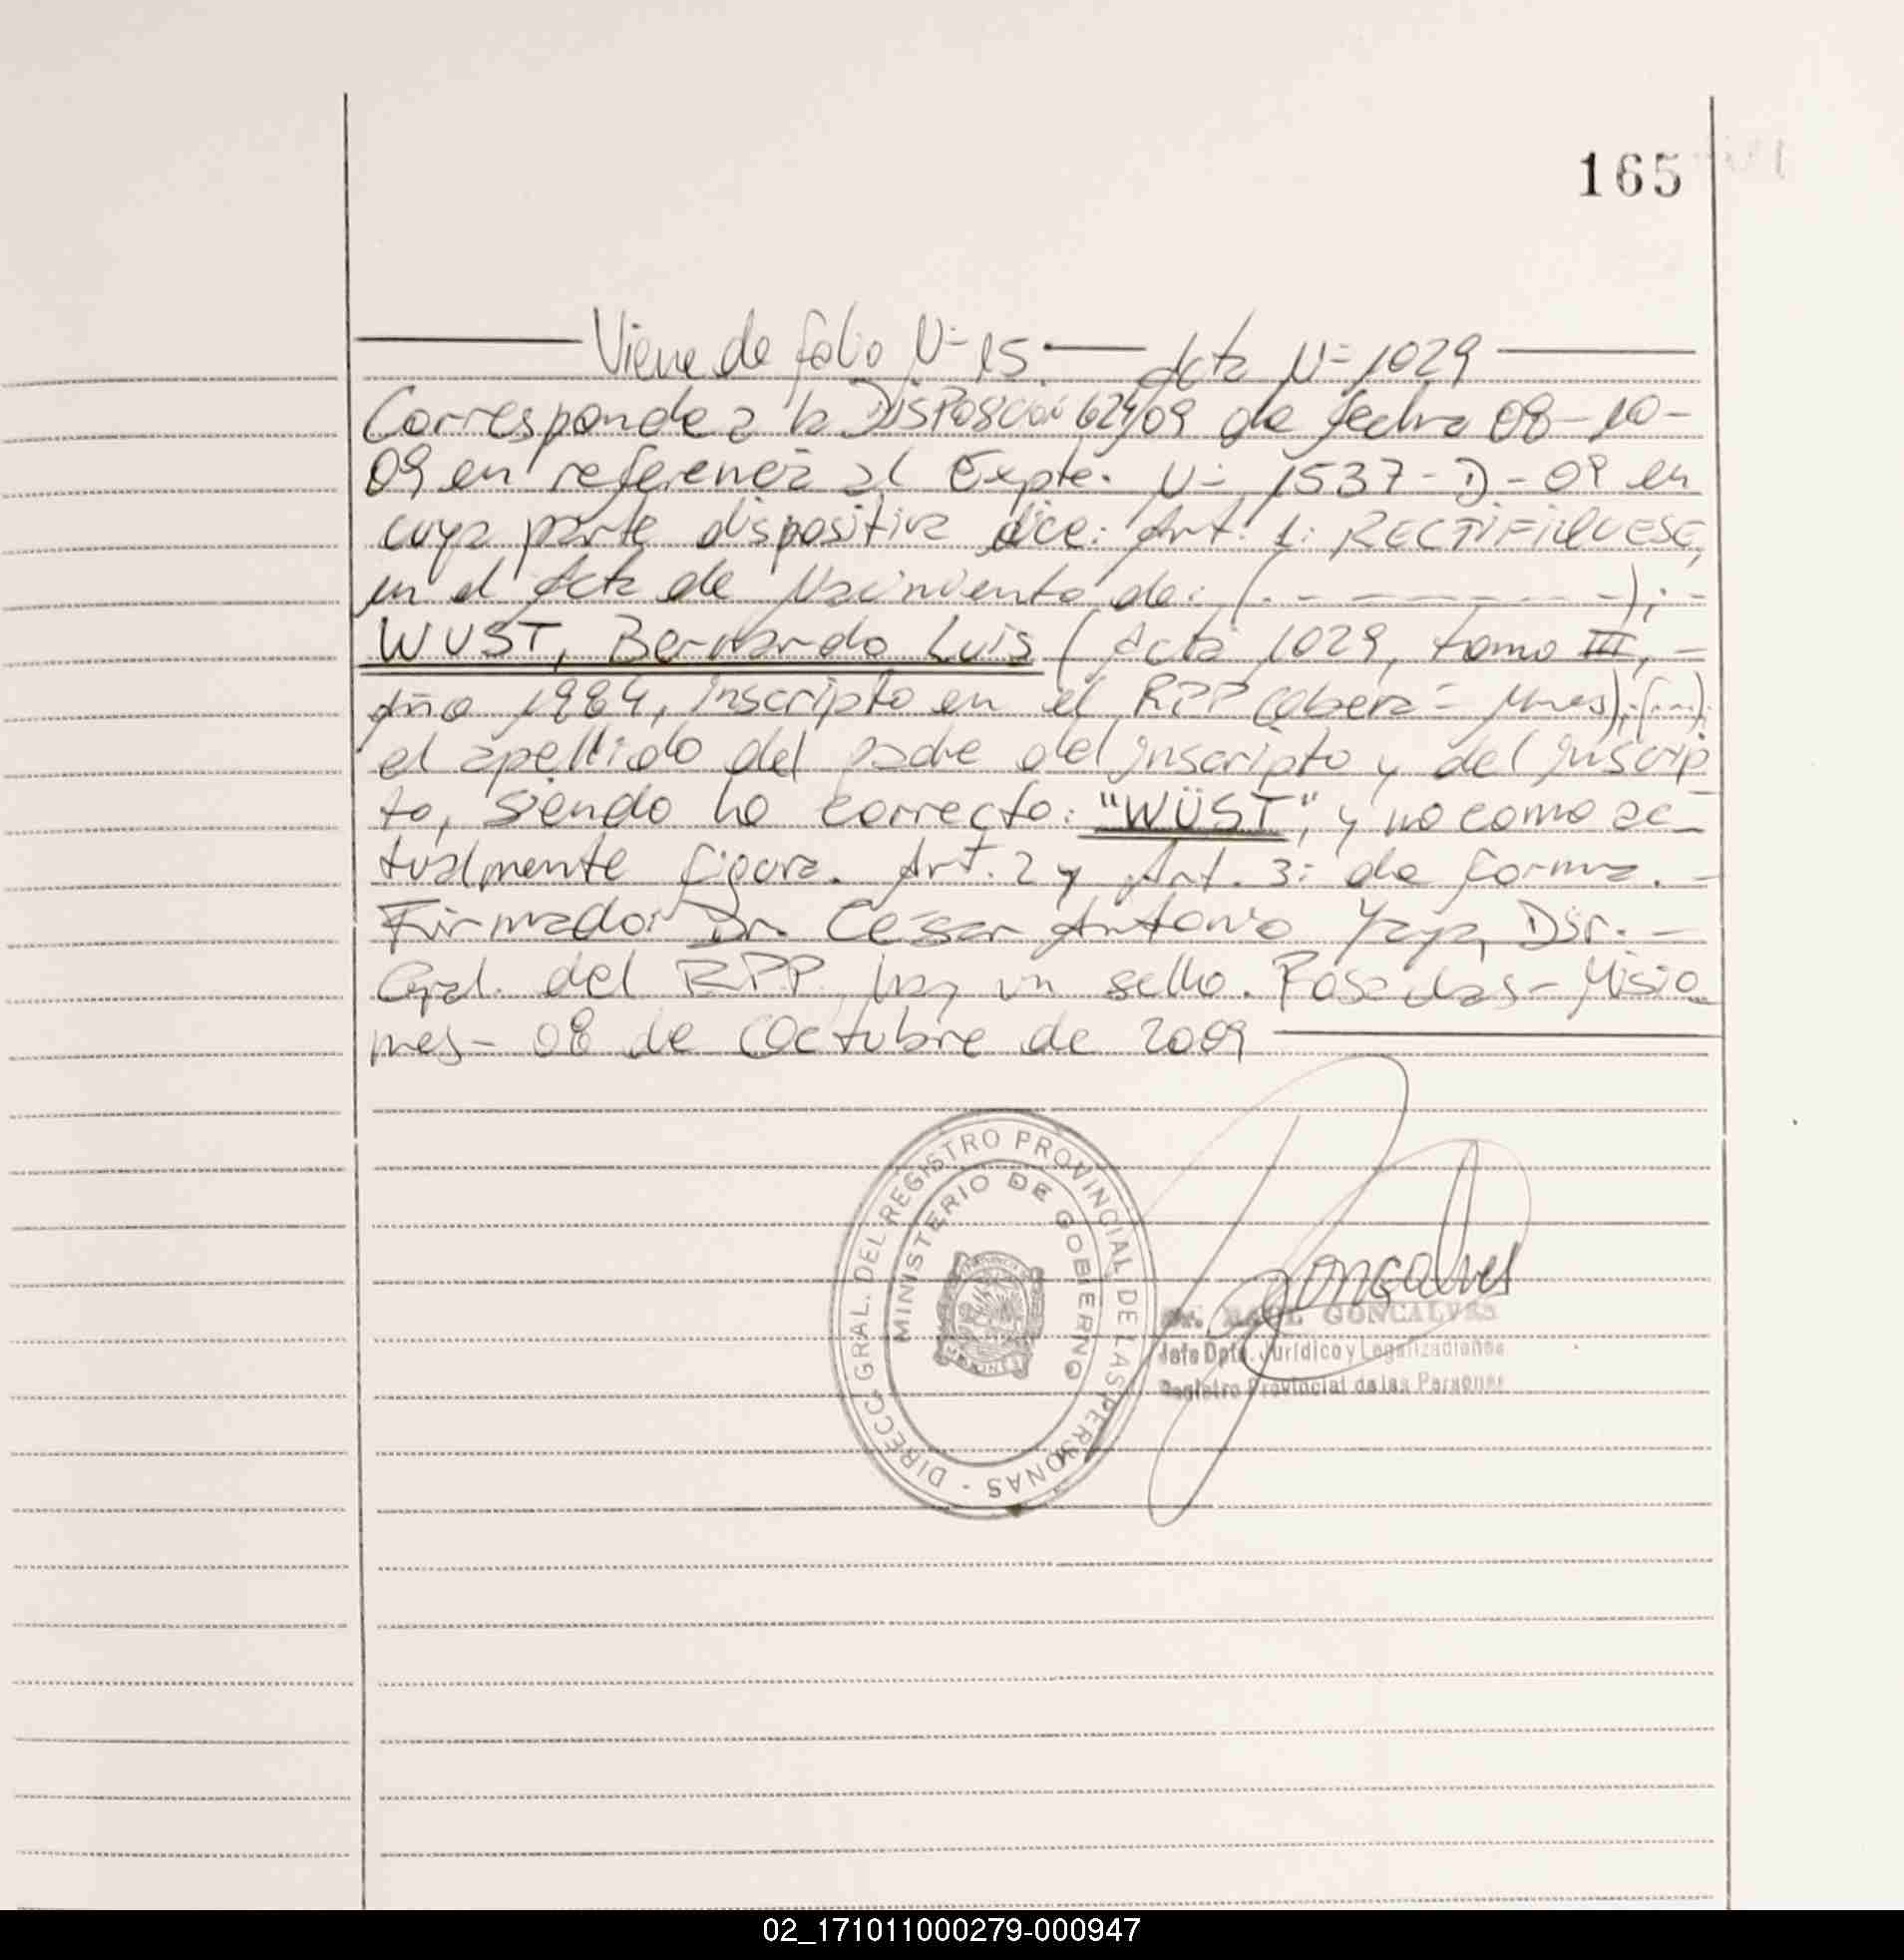 165
Viene de folio Nº 15. — Acta Nº 1029
Corresponde a la DISPOSICIÓN 624/09 de fecha 08-10-
09 en referencia al Expte. Nº 1537-D-09 en
cuya parte dispositiva dice: Art. 1: RECTIFIQUESE,
en el Acta de Nacimiento de: (- - - - - - - -); -
WUST, Bernardo Luis (Acta 1029, tomo III, -
Año 1984, inscripto en el RPP Oberá - Mnes); (...);
el apellido del padre del inscripto y del inscrip
to, siendo lo correcto: "WÜST", y no como ac-
tualmente figura. Art. 2 y Art. 3: de forma. -
Firmado: Dr. César Antonio Yaya, Dir. -
Gral. del RPP. hay un sello. Posadas - Misio
nes - 08 de Octubre de 2009
DIRECC. GRAL. DEL REGISTRO PROVINCIAL DE LAS PERSONAS -
MINISTERIO DE GOBIERNO
MISIONES
Gonçalves
Dr. RAUL GONCALVES
Jefe Dpto. Jurídico y Legalizaciones
Registro Provincial de las Personas
02_171011000279-000947